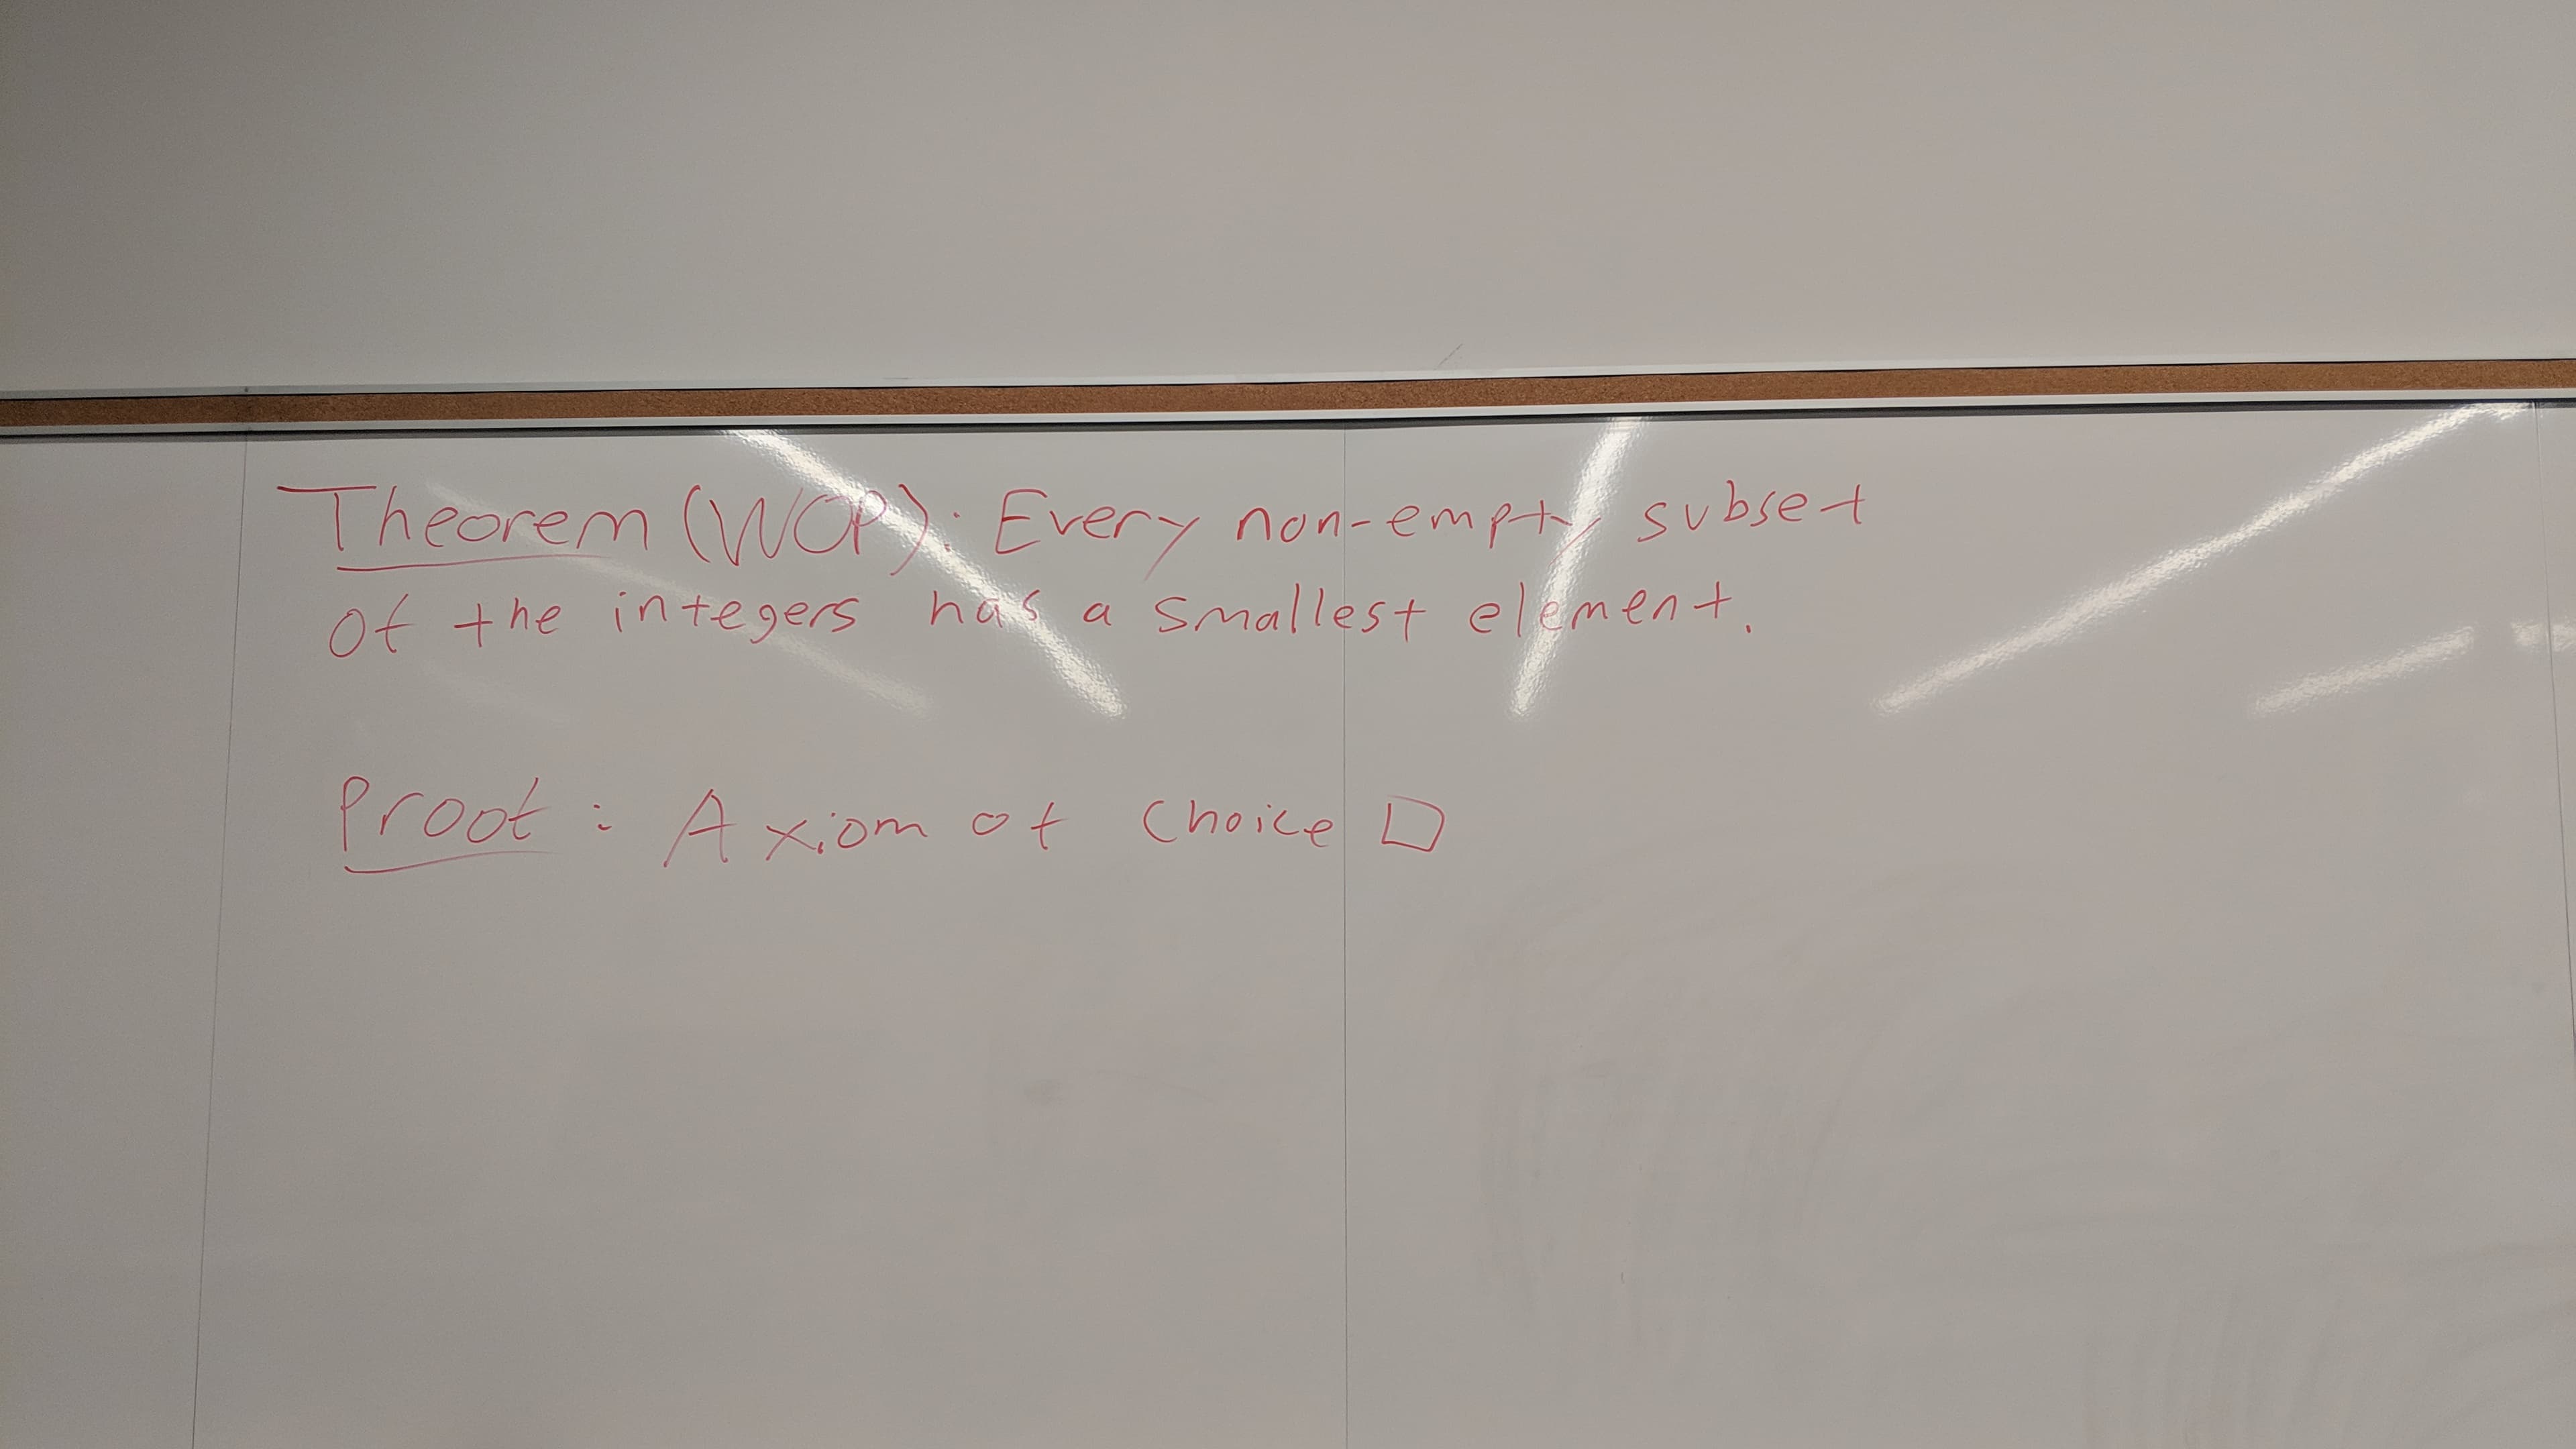 Theorem (WOP): Every non-empty subset
of the integers has a smallest element.
Proof: Axiom of Choice □